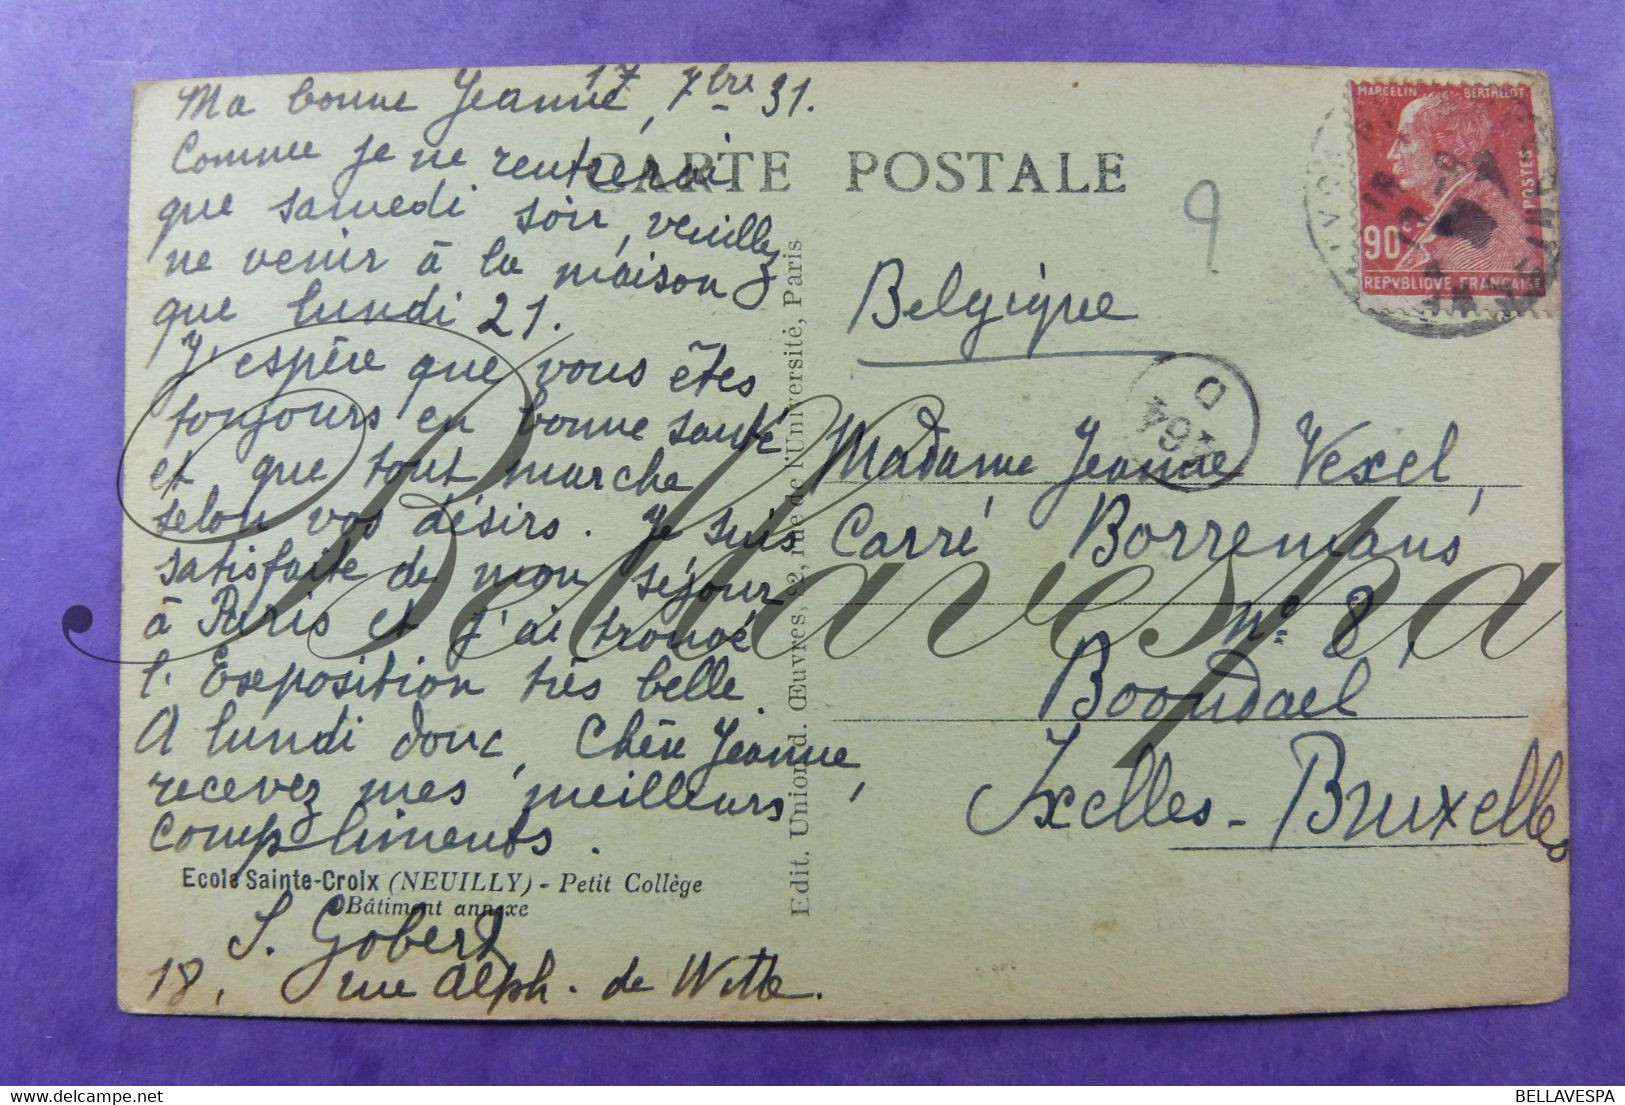 17 7bre 31.
Ma bonne Jeanne,
Comme je ne rentrerai
que samedi soir, veuillez
ne venir à la maison
que lundi 21.
J'espère que vous êtes
toujours en bonne santé
et que tout marche
selon vos désirs. Je suis
satisfaite de mon séjour
à Paris et j'ai trouvé
l'Exposition très belle.
A lundi donc, Chère Jeanne,
recevez mes meilleurs
compliments.
Ecole Sainte-Croix (NEUILLY) - Petit Collège
Bâtiment annexe
S. Gobert
18, rue Alph. de Witte.
CARTE POSTALE
Edit. Union d. Œuvres, rue de l'Université, Paris
9
MARCELIN BERTHELOT
POSTES
90c
REPVBLIQVE FRANÇAISE
Belgique
D
Madame Jeanne Vexel,
Carré Borremans
n° 8,
Boondael
Ixelles - Bruxelles
Bellavespa
BELLAVESPA